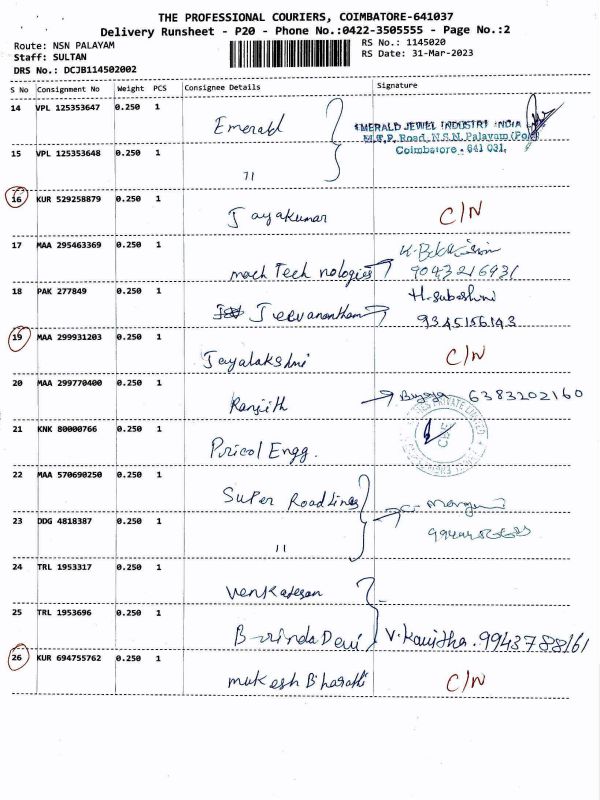 THE PROFESSIONAL COURIERS, COIMBATORE-641037
Delivery Runsheet - P20 - Phone No.:0422-3505555 - Page No.:2
Route: NSN PALAYAM
RS No.: 1145020
Staff: SULTAN
RS Date: 31-Mar-2023
DRS No.: DCJB114502002
S No Consignment No Weight PCS Consignee Details Signature
14 VPL 125353647 0.250 1 Emerald
EMERALD JEWEL INDUSTRY INDIA
M.T.P. Road, N.S.N. Palayam (Po)
Coimbatore - 641 031.
15 VPL 125353648 0.250 1 11
16 KUR 529258879 0.250 1 Jayakumar C/N
17 MAA 295463369 0.250 1 mach Tech nologies
9043216931
18 PAK 277849 0.250 1 Jeevanantham H. Subashini
9345156143
19 MAA 299931203 0.250 1 Jayalakshmi C/N
20 MAA 299770400 0.250 1 Ranjith 6383202160
21 KNK 80000766 0.250 1 Pricol Engg.
PRIVATE LIMITED
22 MAA 570690250 0.250 1 Super Road Lines
23 DDG 4818387 0.250 1 11
24 TRL 1953317 0.250 1 Venkatesan
25 TRL 1953696 0.250 1 Brinda Devi V. Kavitha. 9943788161
26 KUR 694755762 0.250 1 mukesh Bharathi C/N